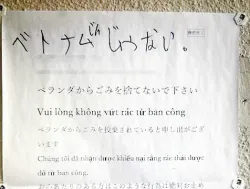 ベトナムじんじゃない。
ベランダからごみを捨てないで下さい
Vui lòng không vứt rác từ ban công
ベランダからごみを投棄されていると申し出がござ
います
Chúng tôi đã nhận được khiếu nại rằng rác thải được
đổ từ ban công.